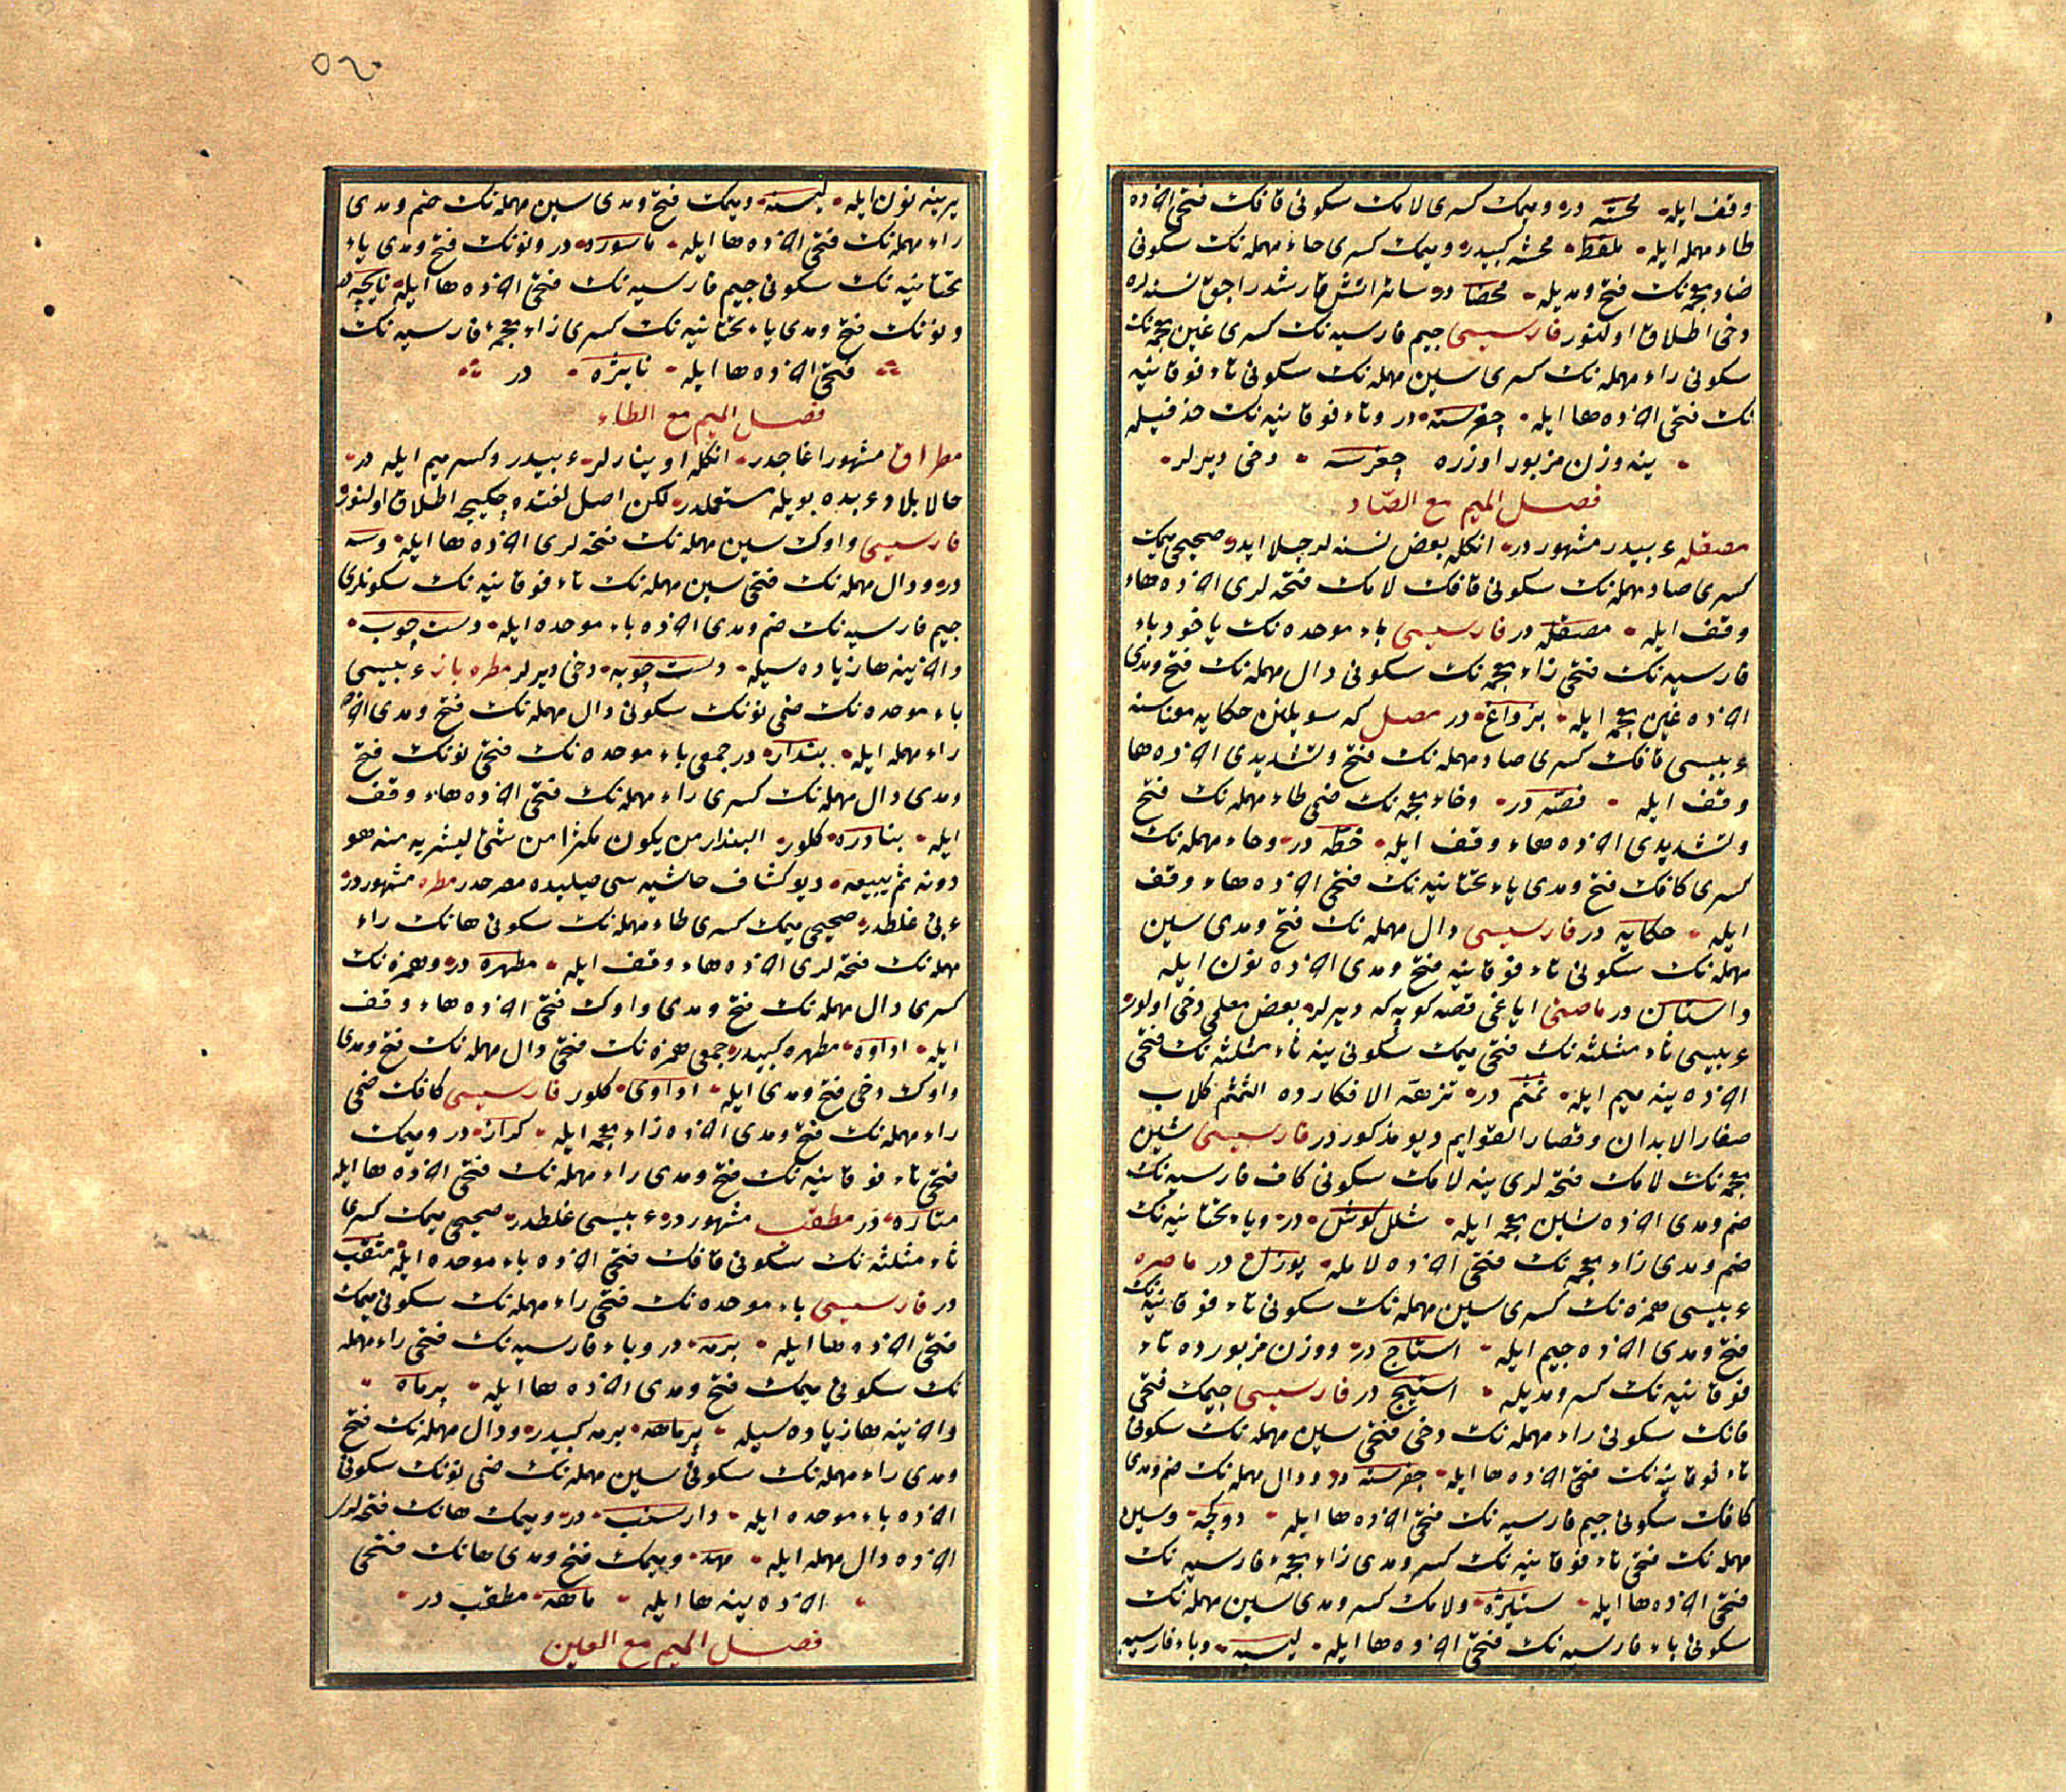 وقف ايله محشه در وميمك كسرى لامك سكونى قافك فتحى اخرده
طاء مهمله ايله ملقط محشه كبيدر وميمك كسرى حاء مهمله نك سكونى
ضاد معجمه نك فتح ومديله محضا در سائر آتش قارشدراجق نسنه لره
دخى اطلاق اولنور فارسيسى جيم فارسيه نك كسرى غين معجمه نك
سكونى راء مهمله نك كسرى سين مهمله نك سكونى تاء فوقانيه
نك فتحى اخرده ها ايله چغرسته در وتاء فوقانيه نك حذفيله
ينه وزن مزبور اوزره چغرسه دخى ديرلر
فصل الميم مع الصاد
مصقله عربيدر مشهوردر انكله بعض نسنه لر جلا ايدر صحيحى ميمك
كسرى صاد مهمله نك سكونى قافك لامك فتحه لرى اخرده هاء
وقف ايله مصقله در فارسيسى باء موحده نك ياخود باء
فارسيه نك فتحى زاء معجمه نك سكونى دال مهمله نك فتح ومدى
اخرده غين معجمه ايله بزداغ در مصل كه سويلنن حكايه معناسنه
عربيسى قافك كسرى صاد مهمله نك فتح وتشديدى اخرده ها
وقف ايله قصه در وخاء معجمه نك ضمى طاء مهمله نك فتح
وتشديدى اخرده هاء وقف ايله خطه در وحاء مهمله نك
كسرى كافك فتح ومدى ياء تحتانيه نك فتحى اخرده هاء وقف
ايله حكايه در فارسيسى دال مهمله نك فتح ومدى سين
مهمله نك سكونى تاء فوقانيه فتح ومدى اخرده نون ايله
داستان در ماصنى اياغى قصه كوپه كه ديرلر بعض معلمى دخى اولور
عربيسى ثاء مثلثه نك فتحى ميمك سكونى ينه ثاء مثلثه نك فتحى
اخرده ينه ميم ايله ثمثم در نزهة الافكارده الثمثم كلاب
صغار الابدان وقصار القوايم ديو مذكوردر فارسيسى شين
معجمه نك لامك فتحه لرى ينه لامك سكونى كاف فارسيه نك
ضم ومدى اخرده شين معجمه ايله شلل كوش در وياء تحتانيه نك
ضم ومدى زاء معجمه نك فتحى اخرده لامله يوزل در ماصره
عربيسى همزه نك كسرى سين مهمله نك سكونى تاء فوقانيه نك
فتح ومدى اخرده جيم ايله استاج در ووزن مزبورده تاء
فوقانيه نك كسر ومديله استيج در فارسيسى جيمك فتحى
فانك سكونى راء مهمله نك دخى فتحى سين مهمله نك سكونى
تاء فوقانيه نك فتحى اخرده ها ايله جفرسته در ودال مهمله نك ضم ومدى
كافك سكونى جيم فارسيه نك فتحى اخرده ها ايله دوكچه وسين
مهمله نك فتحى تاء فوقانيه نك كسر ومدى زاء معجمه فارسيه نك
فتحى اخرده ها ايله ستيژه ولامك كسر ومدى سين مهمله نك
سكونى باء فارسيه نك فتحى اخرده ها ايله ليسپه وباء فارسيه
يرينه نون ايله ليسنه وميمك فتح ومدى سين مهمله نك ضم ومدى
راء مهمله نك فتحى اخرده ها ايله ماسوره در ونونك فتح ومدى ياء
تحتانيه نك سكونى جيم فارسيه نك فتحى اخرده ها ايله نايچه در
ونونك فتح ومدى ياء تحتانيه نك كسرى زاء معجمه فارسيه نك
فتحى اخرده ها ايله نايژه در
فصل الميم مع الطاء
مطراق مشهور اغاجدر انكله اوينارلر عربيدر وكسر ميم ايله در
حالا بلاد عربده بويله مستعملدر لكن اصل لغتده چكيجه اطلاق اولنور
فارسيسى واوك سين مهمله نك فتحه لرى اخرده ها ايله وسه
در ودال مهمله نك فتحى سين مهمله نك تاء فوقانيه نك سكونلرى
جيم فارسيه نك ضم ومدى اخرده باء موحده ايله دست چوب
واخرينه ها زياده سيله دست چوبه دخى ديرلر مطره باز عربيسى
باء موحده نك ضمى نونك سكونى دال مهمله نك فتح ومدى اخرده
راء مهمله ايله بندار در جمعى باء موحده نك فتحى نونك فتح
ومدى دال مهمله نك كسرى راء مهمله نك فتحى اخرده هاء وقف
ايله بنادره كلور البندار من يكون مكثرا من شئ ليشريه منه هو
دونه ثم يبيعه ديو كشاف حاشيه سى ميليده مصرحدر مطره مشهوردر
عربى غلطدر صحيحى ميمك كسرى طاء مهمله نك سكونى هانك راء
مهمله نك فتحه لرى اخرده هاء وقف ايله مطهره در وهمزه نك
كسرى دال مهمله نك فتح ومدى واوك فتحى اخرده هاء وقف
ايله اداوه مطهره كبيدر جمعى همزه نك فتحى دال مهمله نك فتح ومدى
واوك دخى فتح ومدى ايله اداوى كلور فارسيسى كافك ضمى
راء مهمله نك فتح ومدى اخرده زاء معجمه ايله كراز در وميمك
فتحى تاء فوقانيه نك فتح ومدى راء مهمله نك فتحى اخرده ها ايله
متاره در مطقب مشهوردر عربيسى غلطدر صحيحى ميمك كسرى
ثاء مثلثه نك سكونى قافك فتحى اخرده باء موحده ايله مثقب
در فارسيسى باء موحده نك فتحى راء مهمله نك سكونى ميمك
فتحى اخرده ها ايله برمه در وباء فارسيه نك فتحى راء مهمله
نك سكونى ميمك فتح ومدى اخرده ها ايله پرماه
واخرينه ها زياده سيله پرماهه برمه كبيدر ودال مهمله نك فتح
ومدى راء مهمله نك سكونى سين مهمله نك ضمى نونك سكونى
اخرده باء موحده ايله دارسنب در وميمك هانك فتحه لرى
اخرده دال مهمله ايله مهد وميمك فتح ومدى هانك فتحى
اخرده ينه ها ايله ماهه مطقب در
فصل الميم مع العين